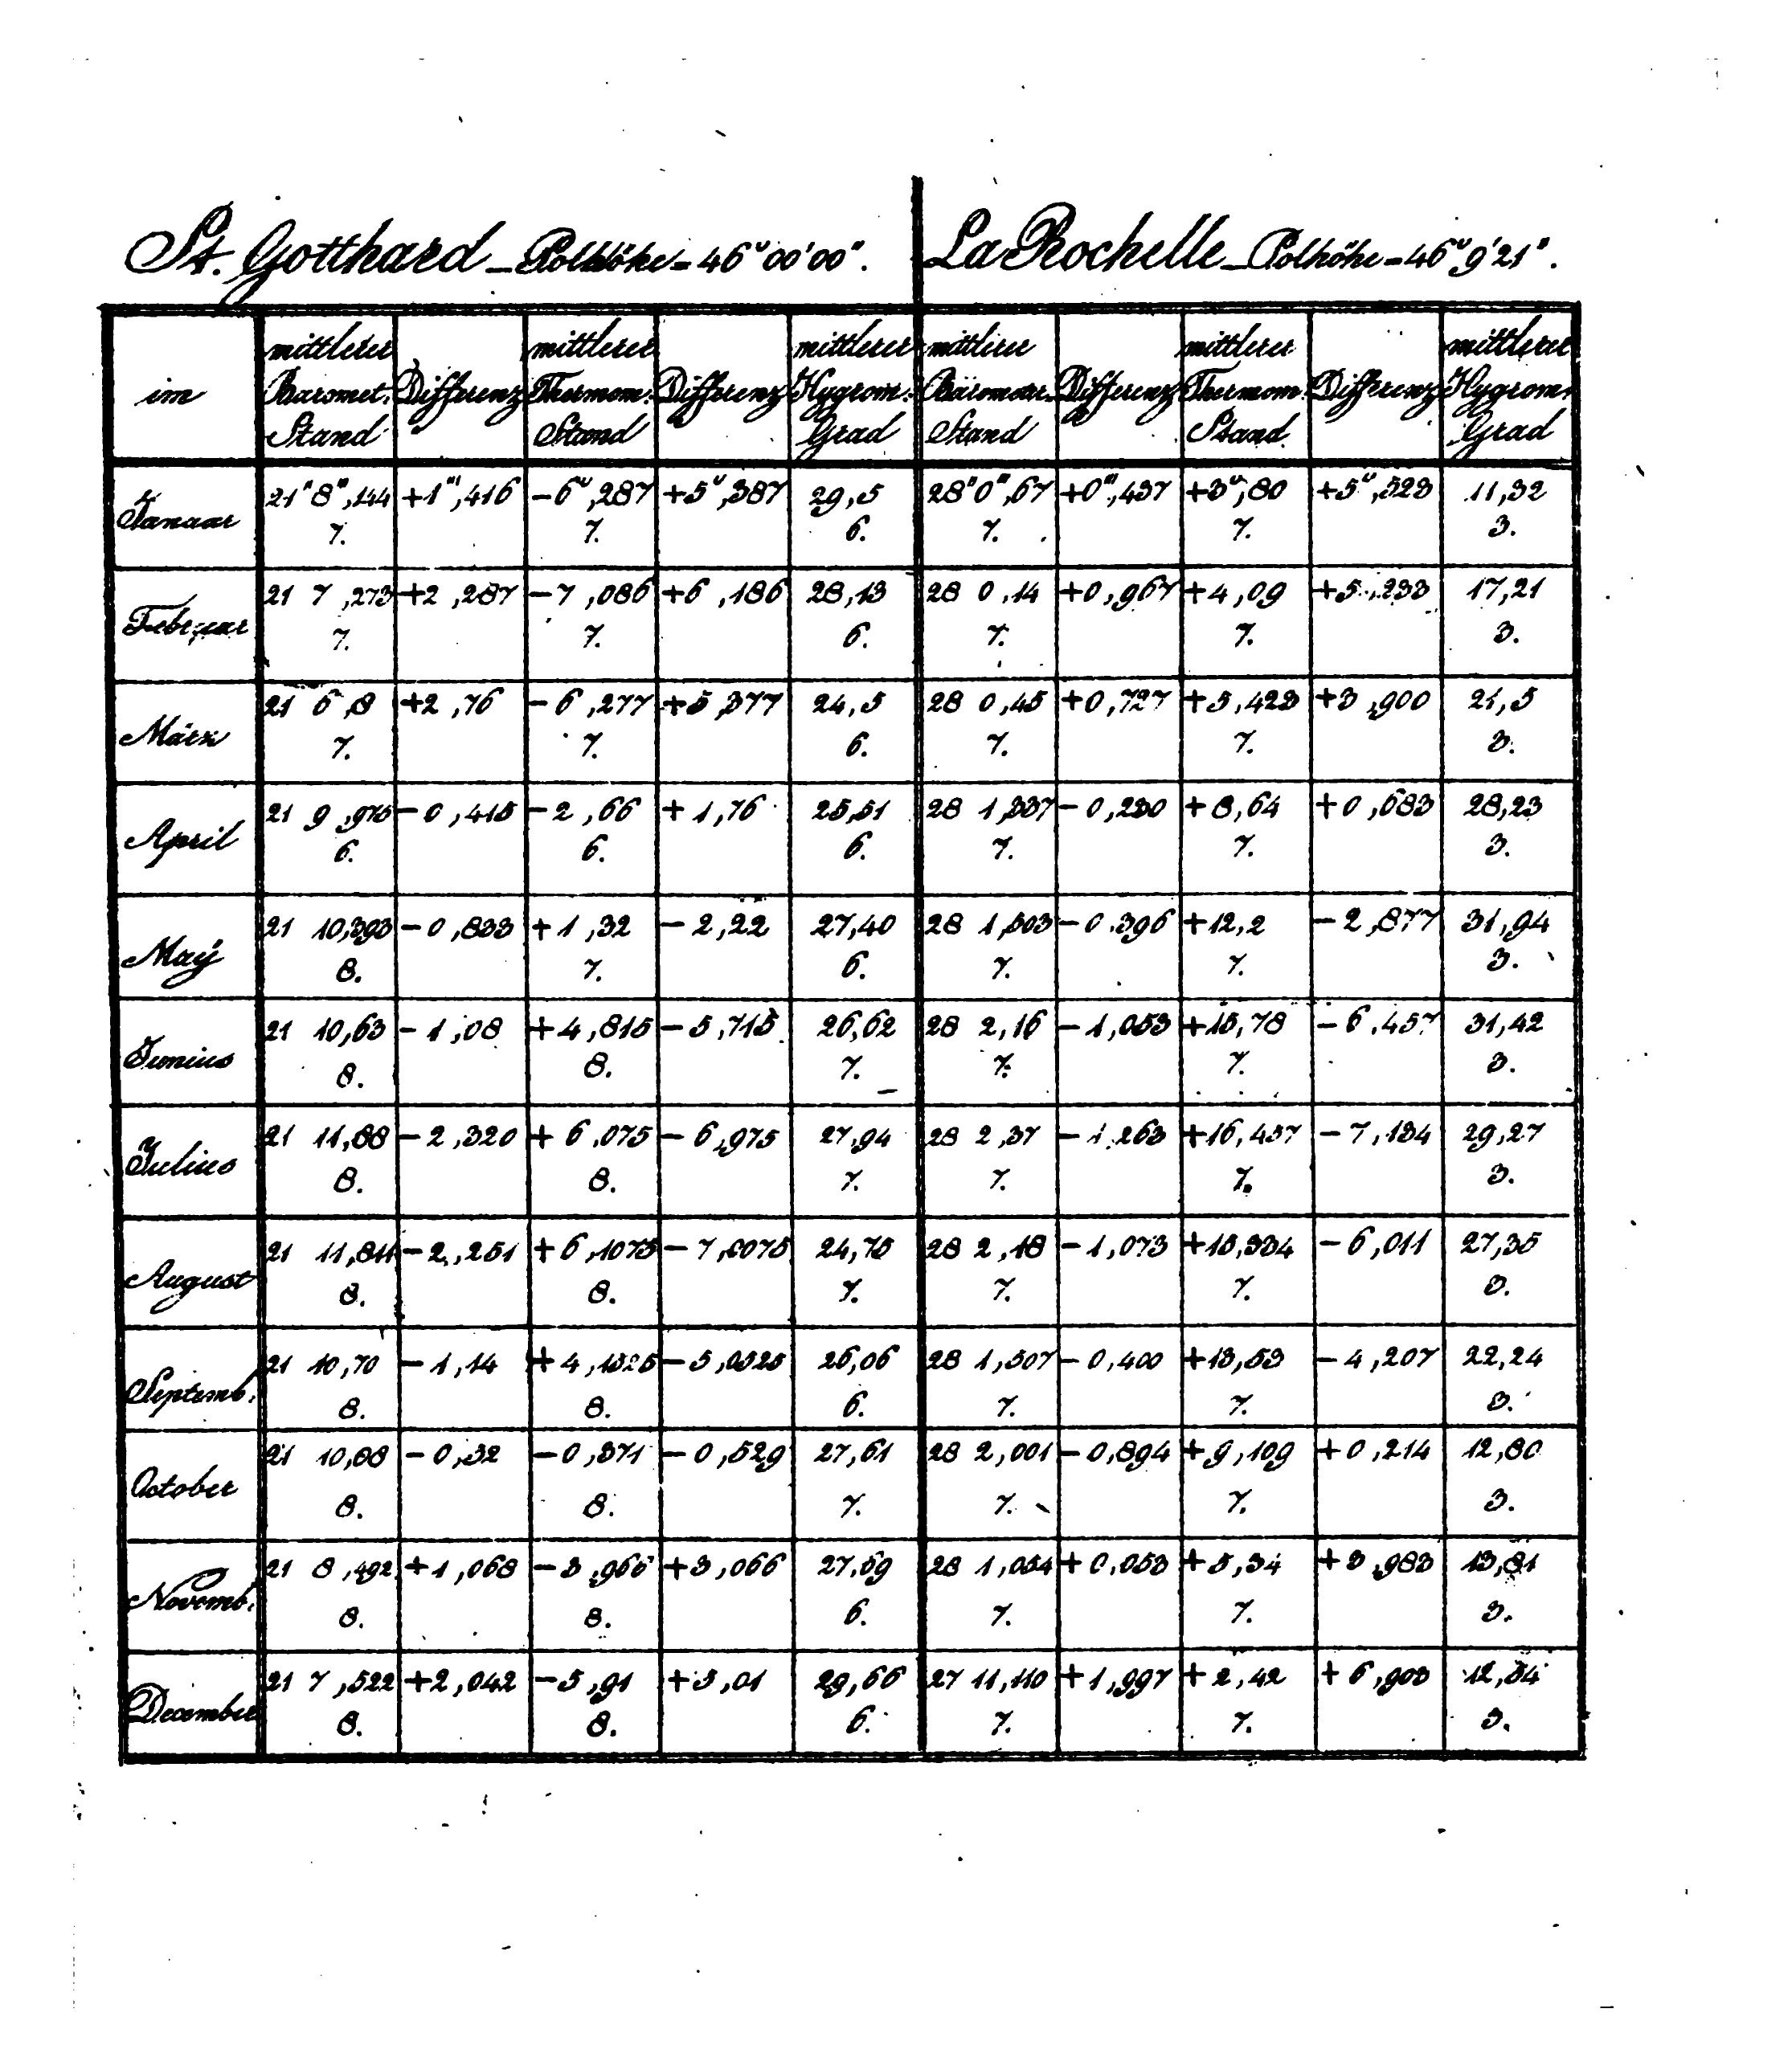 St. Gotthard – Polhöhe = 46° 00' 00". La Rochelle – Polhöhe = 46° 9' 21".
im mittlerer Baromet. Stand Differenz mittlerer Thermom. Stand Differenz mittlerer Hygrom. Grad mittlerer Barometr. Stand Differenz mittlerer Thermom. Stand Differenz mittlerer Hygrom. Grad
Januar 21" 8"',144 +1"',416 –6°,287 +5°,387 29,5 28" 0"',67 +0"',437 +3°,80 +5°,523 11,32
7. 7. 6. 7. 7. 3.
Februar 21 7,273 +2,287 –7,086 +6,186 28,13 28 0,14 +0,967 +4,09 +5,233 17,21
7. 7. 6. 7. 7. 3.
März 21 6,8 +2,76 –6,277 +5,377 24,5 28 0,45 +0,727 +5,423 +3,900 21,5
7. 7. 6. 7. 7. 3.
April 21 9,975 –0,415 –2,66 +1,76 25,51 28 1,337 –0,230 +8,64 +0,683 28,23
6. 6. 6. 7. 7. 3.
Maÿ 21 10,393 –0,833 +1,32 –2,22 27,40 28 1,503 –0,396 +12,2 –2,877 31,94
8. 7. 6. 7. 7. 3.
Junius 21 10,63 –1,08 +4,815 –5,715 26,62 28 2,16 –1,053 +15,78 –6,457 31,42
8. 8. 7. 7. 7. 3.
Julius 21 11,88 –2,320 +6,075 –6,975 27,94 28 2,37 –1,263 +16,457 –7,134 29,27
8. 8. 7. 7. 7. 3.
August 21 11,811 –2,251 +6,1075 –7,0075 24,75 28 2,18 –1,073 +15,334 –6,011 27,35
8. 8. 7. 7. 7. 3.
Septemb. 21 10,70 –1,14 +4,1525 –5,0525 26,06 28 1,507 –0,400 +13,53 –4,207 22,24
8. 8. 6. 7. 7. 3.
October 21 10,88 –0,32 –0,371 –0,529 27,61 28 2,001 –0,894 +9,109 +0,214 12,80
8. 8. 7. 7. 7. 3.
Novemb. 21 8,492 +1,068 –3,966 +3,066 27,69 28 1,054 +0,053 +5,34 +3,983 13,81
8. 8. 6. 7. 7. 3.
December 21 7,522 +2,042 –5,91 +5,01 29,66 27 11,110 +1,997 +2,42 +6,903 12,34
8. 8. 6. 7. 7. 3.